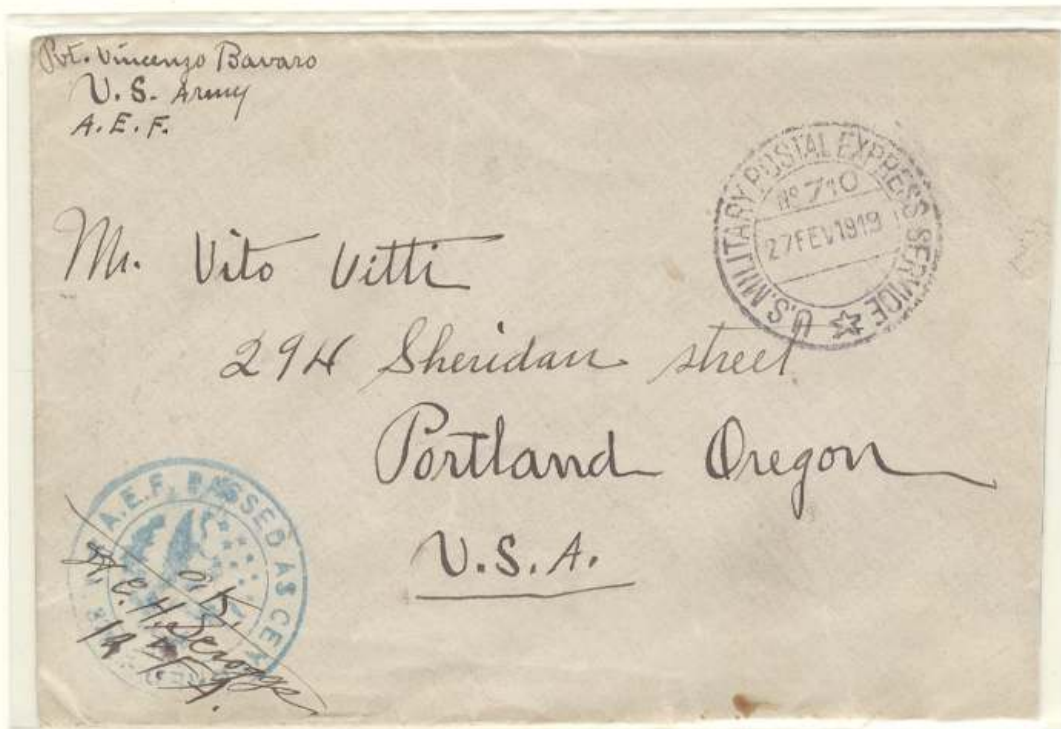 Pvt. Vincenzo Bavaro
U.S. Army
A.E.F.
U.S. MILITARY POSTAL EXPRESS SERVICE
No 710
27FEV1919
Mr. Vito Vitti
294 Sheridan street
Portland Oregon
U.S.A.
A.E.F. PASSED AS CEN
O.K.